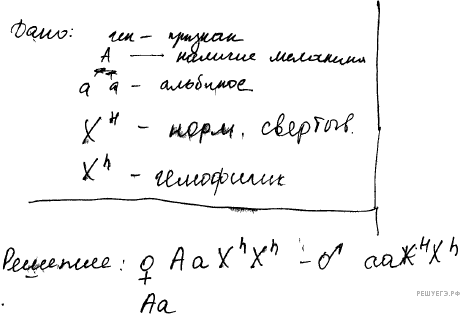 Дано: ген – признак
А → наличие меланина
а а – альбинос
Xᴴ – норм. свертыв.
Xʰ – гемофилик
Решение: ♀ АаXʰXʰ – ♂ ааXᴴXʰ
Аа
РЕШУЕГЭ.РФ